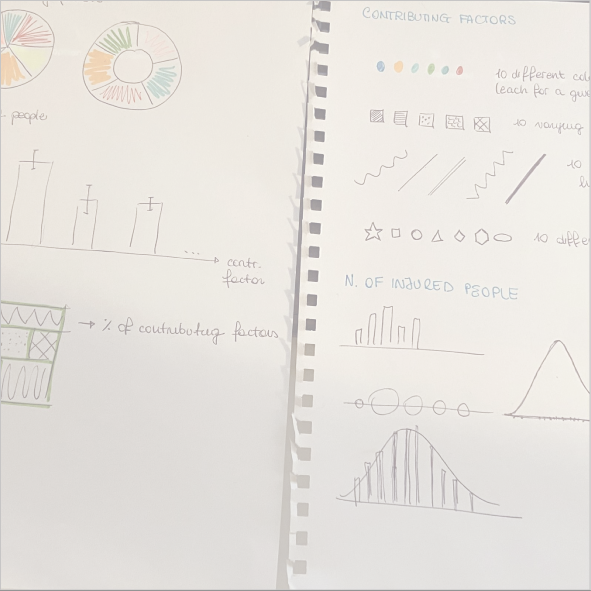 people
contr.
factor
→ % of contributing factors
CONTRIBUTING FACTORS
10 different
(each for a
10 varying
10
10
N. OF INJURED PEOPLE